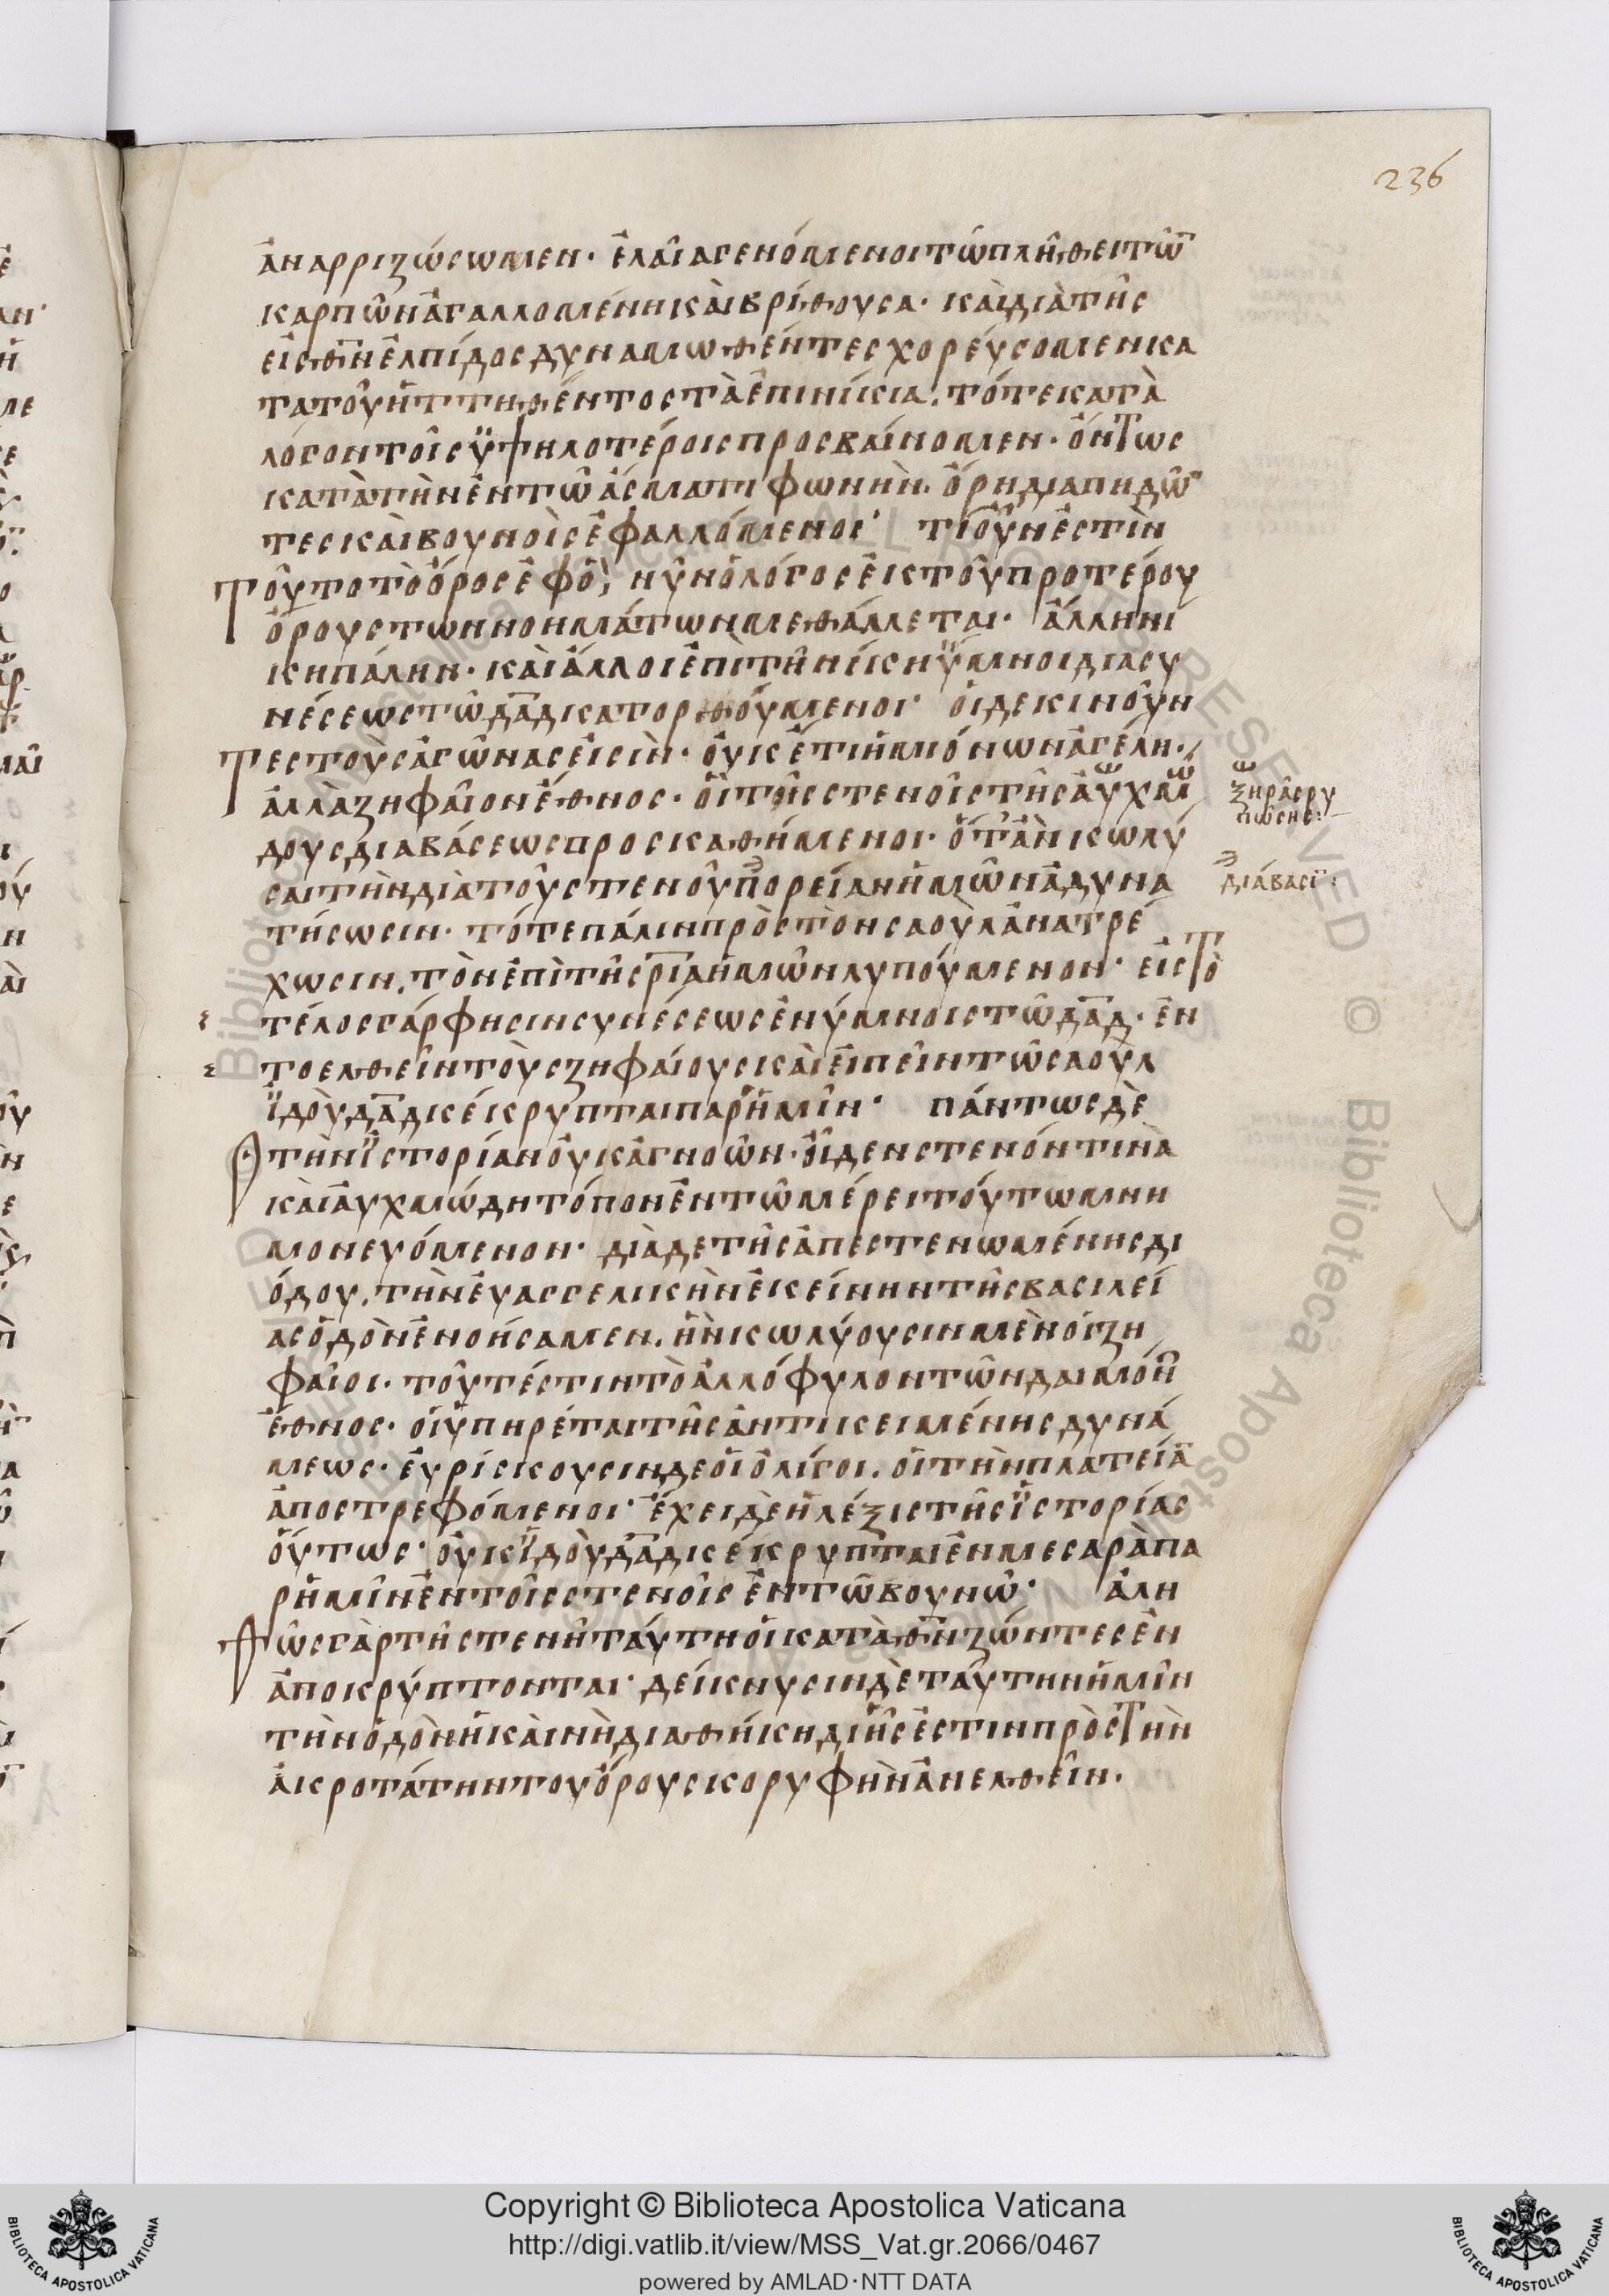 236
ἀναρριζώσωμεν· ἐλαία γενόμενοι τῶ πλήθει τῶ̅
καρπῶν ἀγαλλομένη καὶ βρίθουσα· καὶ διὰ τῆς
εἰς θ̅ν ἐλπίδος δυναμωθέντες χορεύσομεν κα
τὰ τοῦ ἡττηθέντος τὰ ἐπινίκια. τότε κατὰ
λόγον τοῖς ὑψηλοτέροις προσβαίνομεν· ὄντως
κατὰ τὴν ἐν τῶ ἄσματι φωνὴν. ὄρη διαπηδῶ̅
τες καὶ βουνοῖς ἐφαλλόμενοι· τί οὖν ἐστὶν
Τοῦτο τὸ ὄρος ἐφ' ὃ, νῦν ὁ λόγος ἐκ τοῦ προτέρου
ὄρους τῶν νοημάτων μεθάλλεται· ἄλλη νί
κη πάλιν· καὶ ἄλλοι ἐπὶ τῆ νίκη ὕμνοι διὰ συ
νέσεως τῶ δα̅δ κατορθούμενοι· οἱ δὲ κινοῦν
Τες τοὺς ἀγῶνας εἰσὶν· οὐκέτι ἡμιόνων ἀγέλη·
ἀλλὰ ζηφαῖον ἔθνος· οἳ τοῖς στενοῖς τῆς αὐχμώ
δους διαβάσεως προσκαθήμενοι· ὅτ' ἂν κωλύ
σαι τὴν διὰ τοῦ στενοῦ πορείαν ἡμῶν ἀδυνα
τήσωσιν· τότε πάλιν πρὸς τὸν σαοὺλ ἀνατρέ
χωσιν. τὸν ἐπὶ τῆς σ̅ρία ἡμῶν λυπούμενον· εἰς τὸ
τέλος γάρ φησιν συνέσεως ἐν ὕμνοις τῶ δα̅δ· ἐν
τὸ ἐλθεῖν τοὺς ζηφαίους καὶ εἰπεῖν τῶ σαοὺλ
ἰδοὺ δα̅δ κέκρυπται παρ' ἡμῖν· πάντως δὲ
τὴν ἱστορίαν οὐκ ἀγνοῶν· οἶδεν στενόν τινὰ
καὶ αὐχμώδη τόπον ἐν τῶ μέρει τούτω μνη
μονευόμενον· διὰ δὲ τῆς ἀπεστενωμένης δι
όδου. τὴν εὐαγγελικὴν ἐκείνην τῆς βασιλεί
ας ὁδὸν ἐνοήσαμεν. ἣν κωλύουσιν μὲν οἱ ζη
φαῖοι· τοῦτέστιν τὸ ἀλλόφυλον τῶν δαιμόν̅
ἔθνος· οἱ ὑπηρέται τῆς ἀντικειμένης δυνά
μεως· εὑρίσκουσιν δε οἱ ὀλίγοι. οἱ τὴν πλατεῖα̅
ἀποστρεφόμενοι· ἔχει δὲ ἡ λέξις τῆς ἱστορίας
οὕτως· οὐκ ἰδοὺ δα̅δ κέκρυπται ἐν μεσαρὰ πα
ρ' ἡμῖν ἐν τοῖς στενοῖς ἐν τῶ βουνῶ· ἀλη
θῶς γὰρ τῆ στενῆ ταύτη οἱ κατὰ θ̅ν ζῶντες ἐν
ἀποκρύπτονται· δείκνυσιν δὲ ταύτην ἡμῖν
τὴν ὁδὸν ἡ καινὴ διαθήκη δι' ἧς ἐστιν πρὸς τὴν
ἀκροτάτην τοῦ ὄρους κορυφὴν ἀνελθεῖν.
διάβασϊ:
Copyright © Biblioteca Apostolica Vaticana
http://digi.vatlib.it/view/MSS_Vat.gr.2066/0467
powered by AMLAD·NTT DATA
BIBLIOTECA APOSTOLICA VATICANA
BIBLIOTECA APOSTOLICA VATICANA